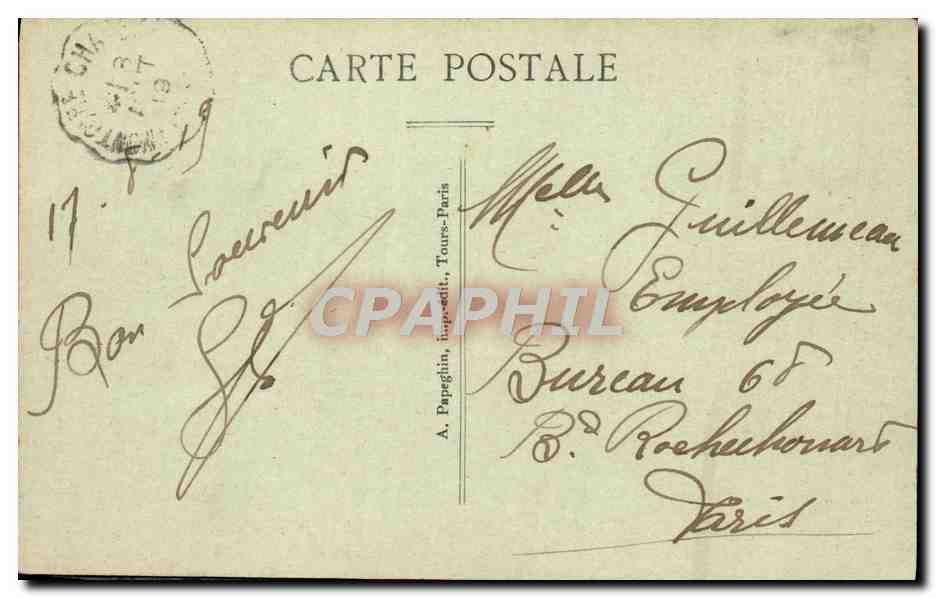 CARTE POSTALE
17. 8. 19
Bon Souvenir
A. Papeghin, imp.-édit., Tours-Paris
CPAPHIL
Melle Guillemeau
Employée
Bureau 68
Bd. Rochechouart
Paris